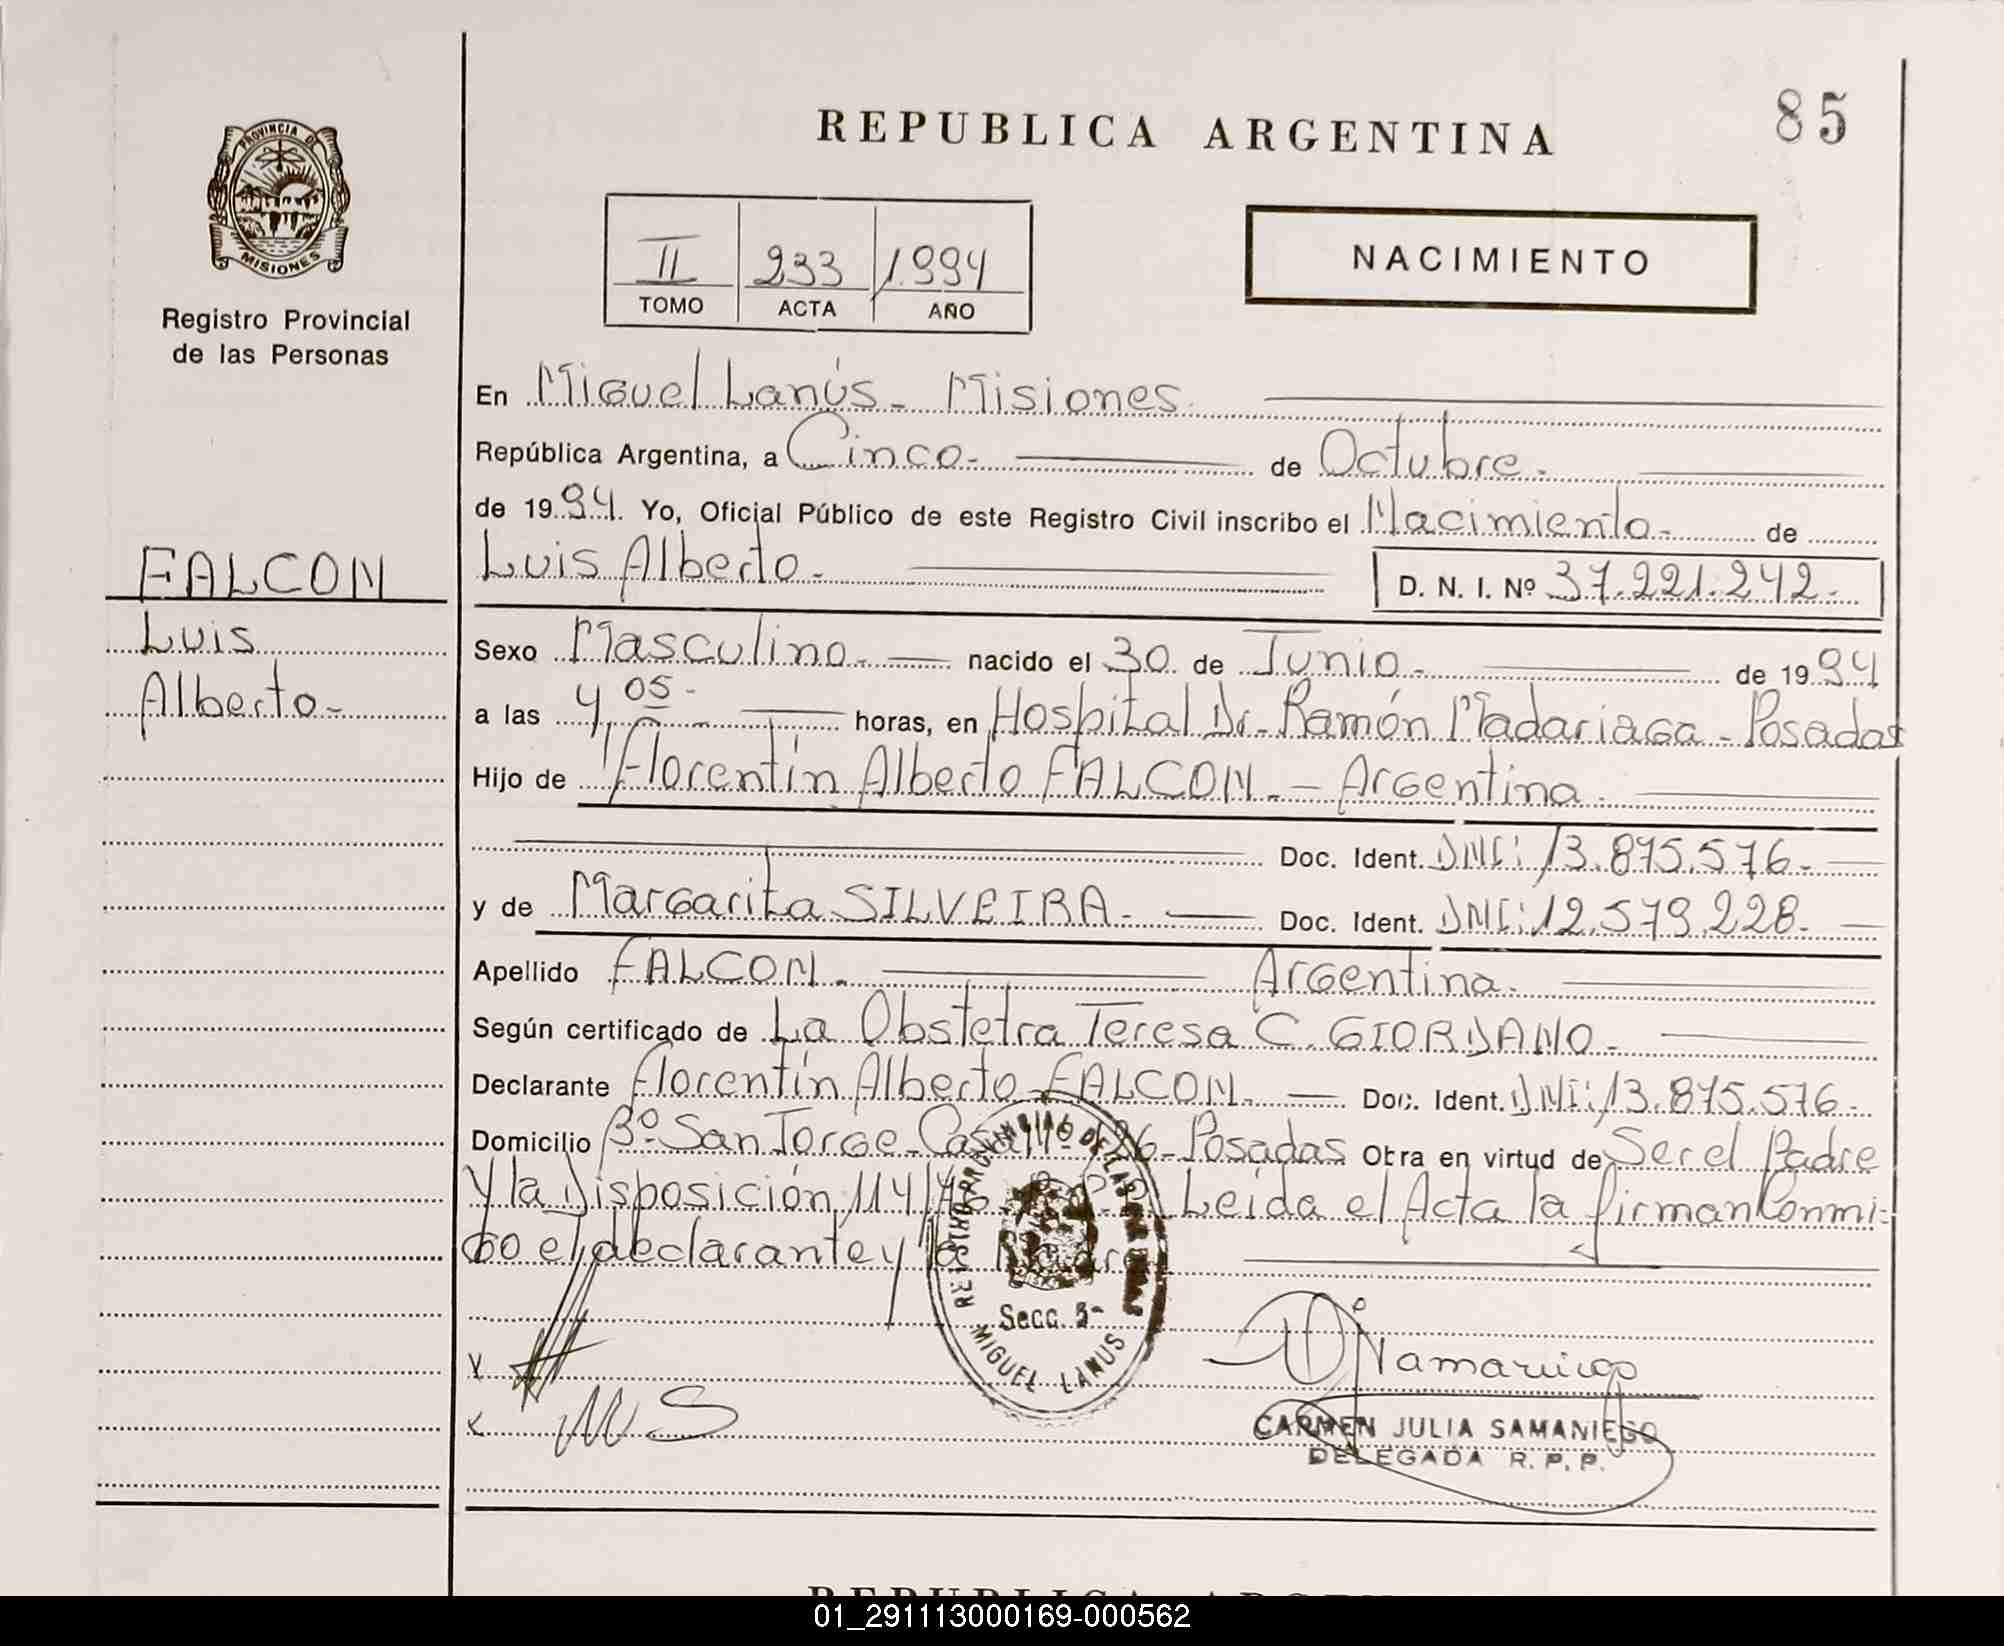 REPUBLICA ARGENTINA
85
PROVINCIA DE
MISIONES
Registro Provincial
de las Personas
II 233 1.994
TOMO ACTA AÑO
NACIMIENTO
En Miguel Lanús - Misiones.
República Argentina, a Cinco.- de Octubre.-
de 1994. Yo, Oficial Público de este Registro Civil inscribo el Nacimiento.- de
FALCON
Luis
Alberto.-
Luis Alberto.- D. N. I. Nº 37.221.242.-
Sexo Masculino.- nacido el 30 de Junio.- de 1994
a las 4,05.- horas, en Hospital Dr. Ramón Madariaga - Posadas
Hijo de Florentín Alberto FALCON.- Argentina.
Doc. Ident. DNI: 13.875.576.-
y de Margarita SILVEIRA.- Doc. Ident. DNI: 12.579.228.-
Apellido FALCON.- Argentina.-
Según certificado de La Obstetra Teresa C. GIORDANO.-
Declarante Florentín Alberto FALCON.- Doc. Ident. DNI: 13.875.576.-
Domicilio Bº San Jorge - Casa Nº 186 - Posadas Obra en virtud de Ser el Padre
Y la Disposición 114/ Leída el Acta la firman Conmi-
go el declarante y la Madre
REGISTRO PROVINCIAL DE LAS PERSONAS
Secc. 3-
MIGUEL LANUS
MS
CARMEN JULIA SAMANIEGO
DELEGADA R. P. P.
01_291113000169-000562